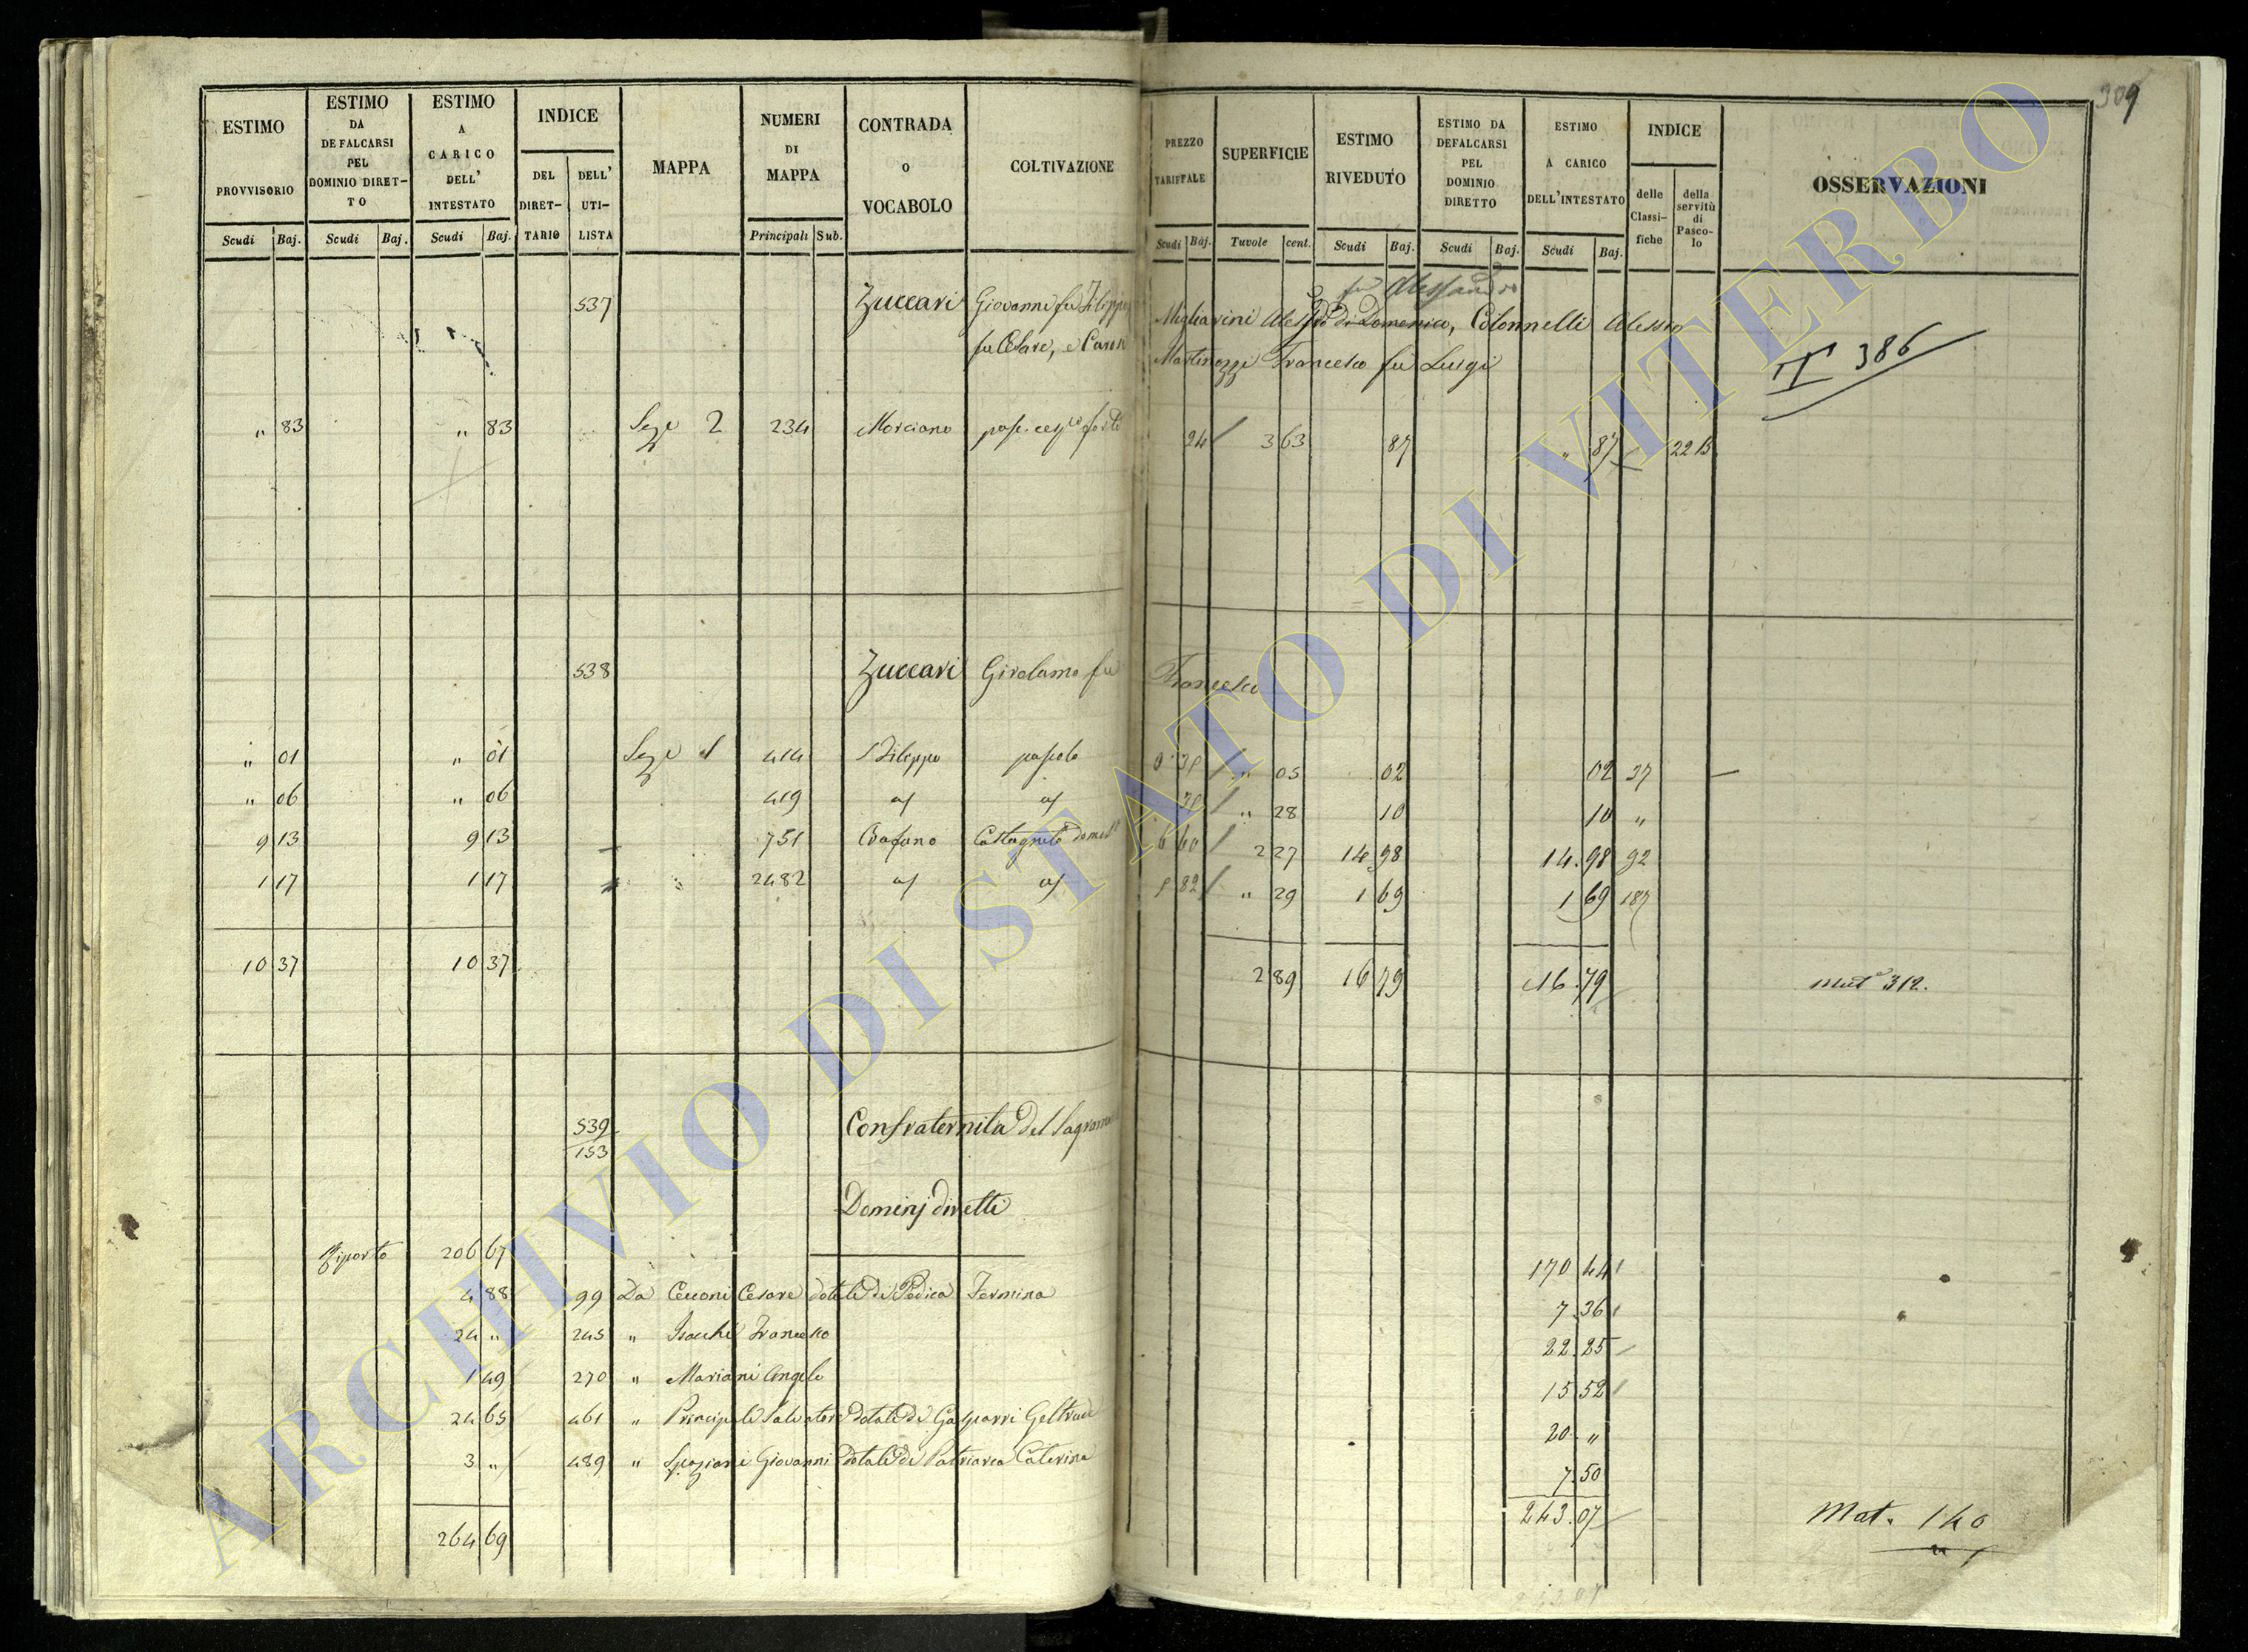 309
ESTIMO PROVVISORIO
ESTIMO DA DEFALCARSI PEL DOMINIO DIRET-TO
ESTIMO A CARICO DELL' INTESTATO
INDICE
DEL DIRET-TARIO
DELL' UTI-LISTA
MAPPA
NUMERI DI MAPPA
CONTRADA o VOCABOLO
COLTIVAZIONE
PREZZO TARIFFALE
SUPERFICIE
ESTIMO RIVEDUTO
ESTIMO DA DEFALCARSI PEL DOMINIO DIRETTO
ESTIMO A CARICO DELL'INTESTATO
INDICE
delle Classi-fiche
della servitù di Pasco-lo
OSSERVAZIONI
Scudi Baj. Scudi Baj. Scudi Baj. Principali Sub. Scudi Baj. Tavole cent. Scudi Baj. Scudi Baj. Scudi Baj.
fu Alessandro
537 Zuccari Giovanni fu Filippo Migliarini Aless. di Domenico, Colonnelli Alessio
fu Cesare, e Martinozzi Francesco fu Luigi
N 386
" 83 " 83 Sez 2 234 Morciano pas. forte 24 3 63 87 " 87 22 B
538 Zuccari Girolamo fu Francesco
" 01 " 01 Sez 1 414 S Filippo pascolo 0 38 " 05 02 02 37
" 06 " 06 419 " 28 10 10 "
9 13 9 13 751 Castagneto domest 6 60 2 27 14 98 14.98 92
1 17 1 17 2482 5 82 " 29 1 69 1 69 187
10 37 10 37 2 89 16 79 16.79 Mat 312.
539
153
Confraternita del Sagram
Dominj diretti
Riporto 206 67 170 44
4 88 99 Da Cecconi Cesare dotale di Pedica Fermina 7.36
24 " 245 " Isacchi Francesco 22.25
1 49 270 " Mariani Angelo 15 52
24 65 461 " Principali Salvatore dotale di Gasparri Geltrude 20 "
3 " 489 " Spaziani Giovanni dotale di Patriarca Caterina 7.50
264 69 243.07 Mat. 140
ARCHIVIO DI STATO DI VITERBO